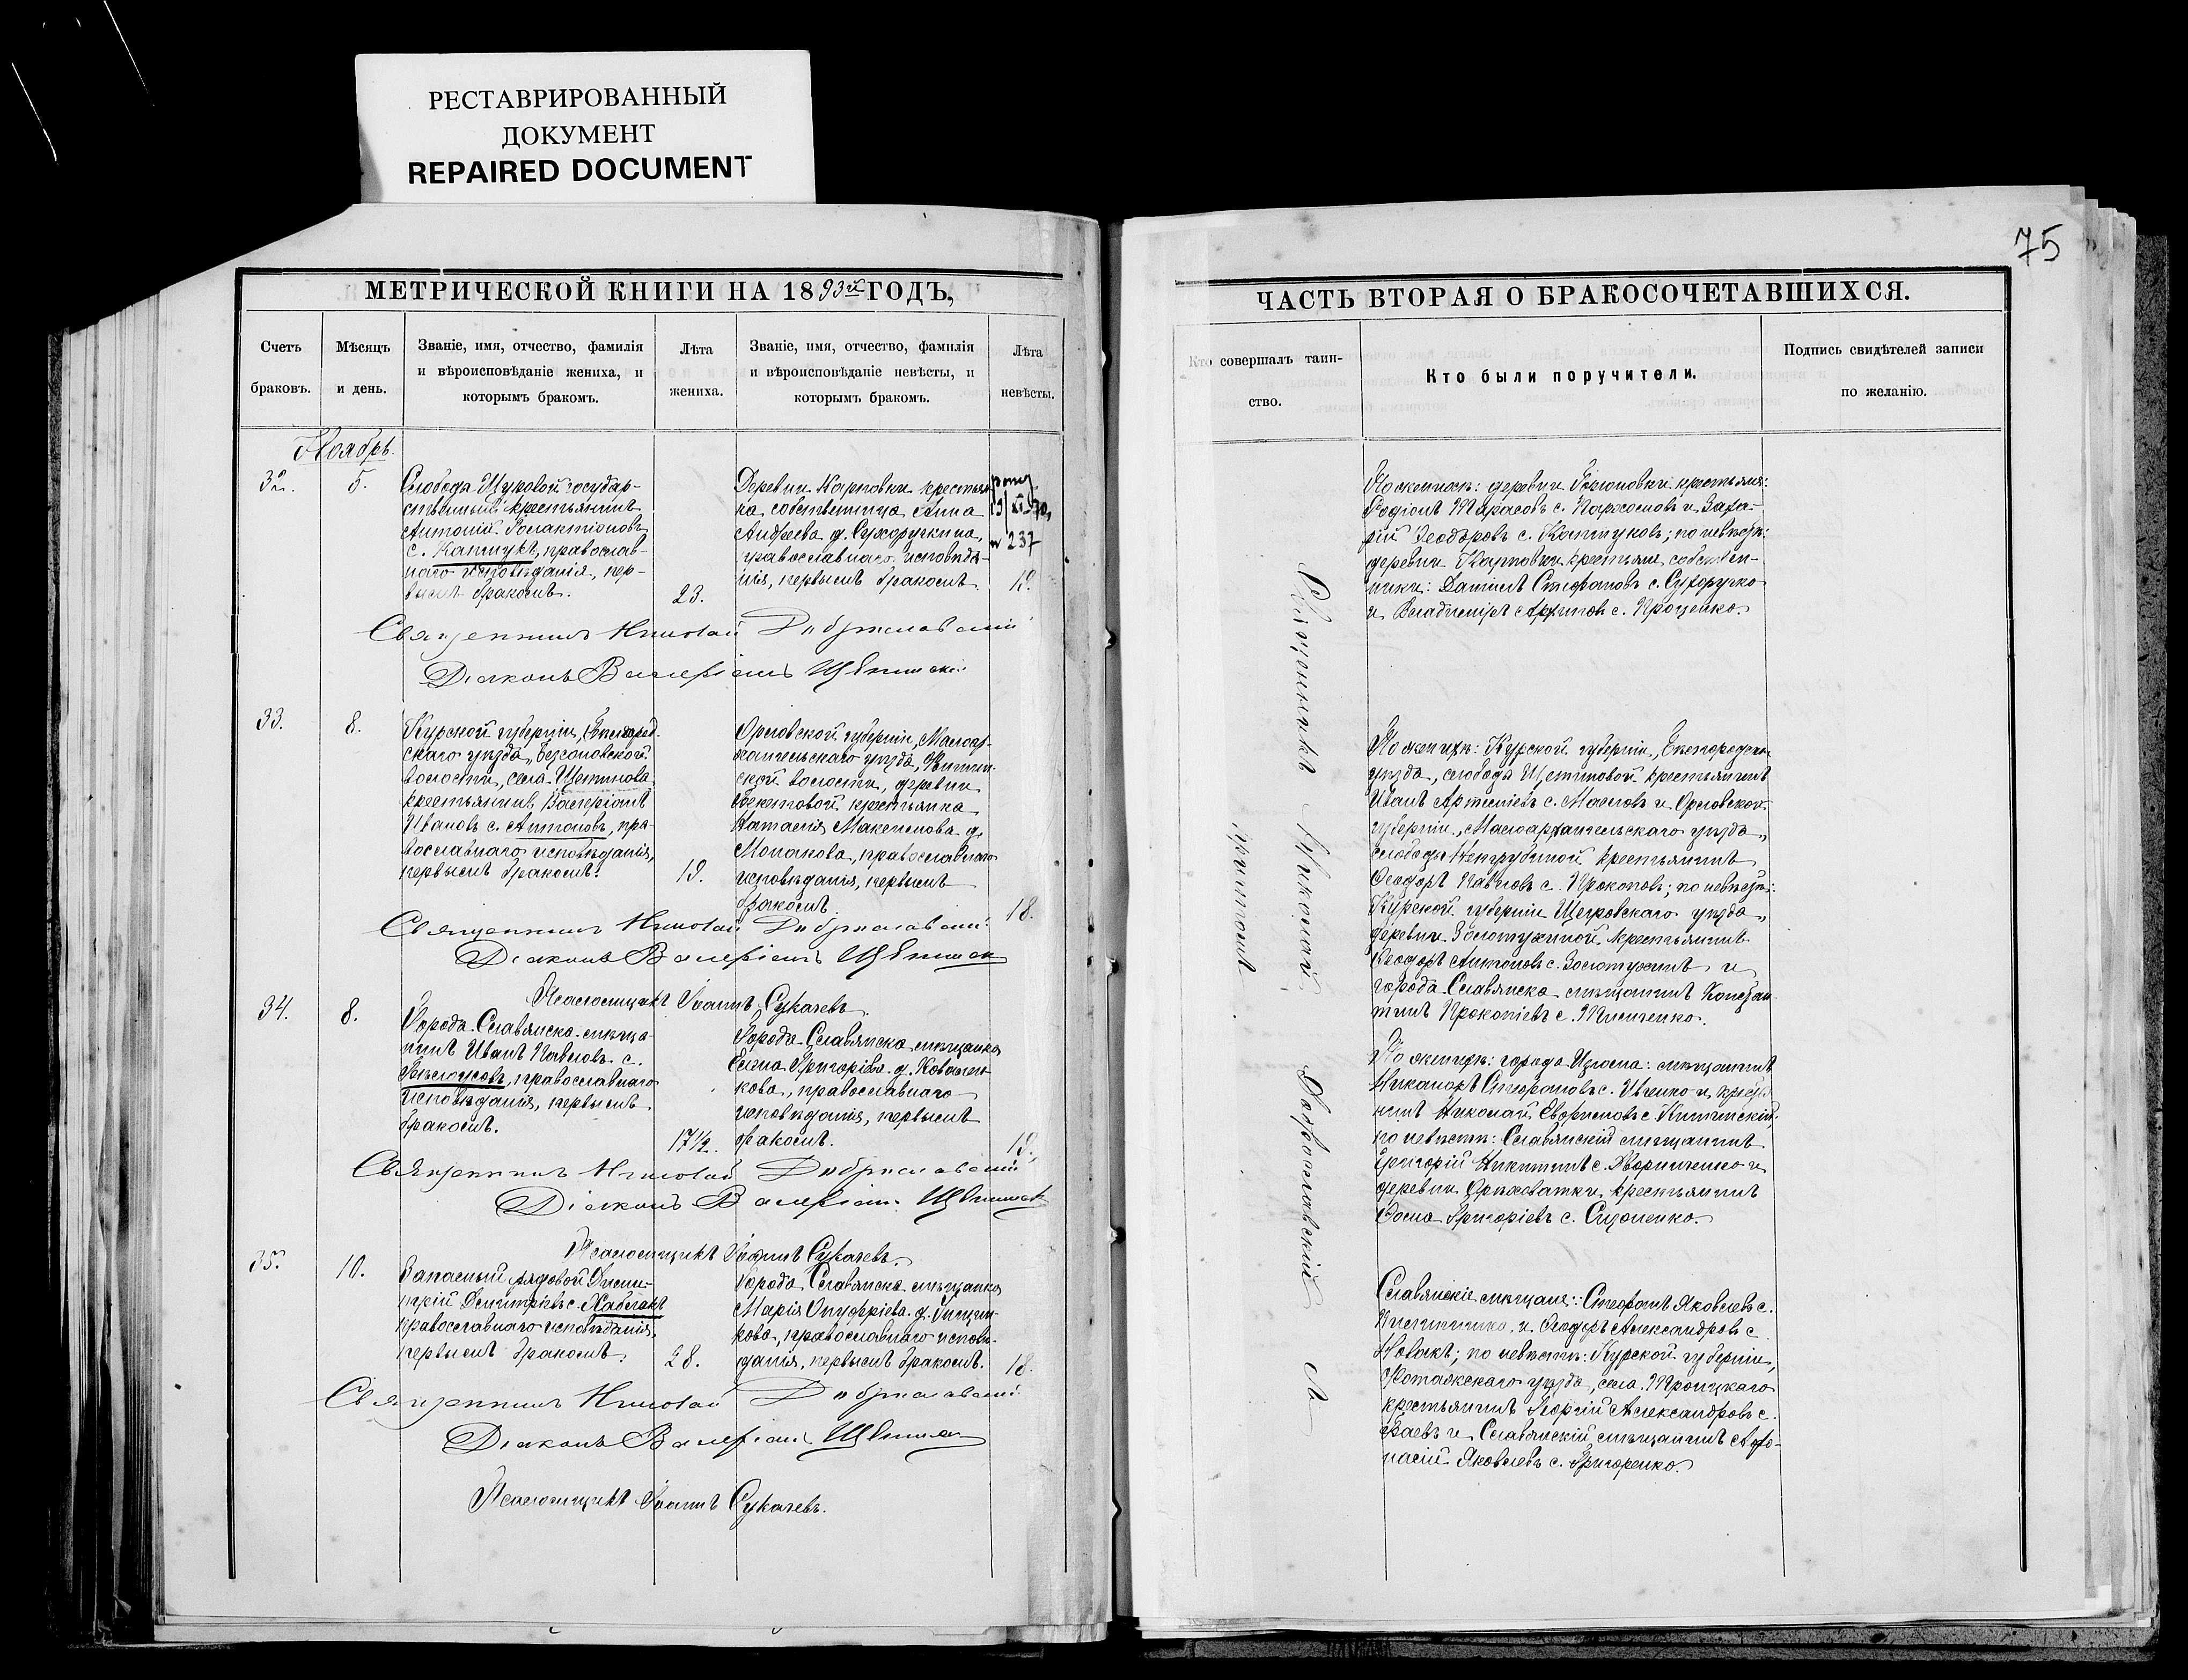 РЕСТАВРИРОВАННЫЙ
ДОКУМЕНТ
REPAIRED DOCUMENT
МЕТРИЧЕСКОЙ КНИГИ НА 1893й ГОДЪ,
Счетъ
браковъ.
Мѣсяцъ
и день.
Званіе, имя, отчество, фамилія
и вѣроисповѣданіе жениха, и
которымъ бракомъ.
Лѣта
жениха.
Званіе, имя, отчество, фамилія
и вѣроисповѣданіе невѣсты, и
которымъ бракомъ.
Лѣта
невѣсты.
Ноябрь.
32.
5.
государ-
ственный крестьянинъ
Антоній
с. православ-
наго исповѣданія, пер-
вымъ бракомъ.
23.
Деревни Карповки крестьян
ка собственница Анна
Андреева д. Сухоручкина,
православнаго исповѣда-
нія, первымъ бракомъ.
№ 237
19.
Священникъ Николай Доброславскій
Діаконъ Валеріанъ
33.
8.
Курской губерніи, Бѣлгород-
скаго уѣзда, Безсоновской
волости, села Щетинова
крестьянинъ Валеріанъ
Ивановъ с. Антоновъ, пра-
вославнаго исповѣданія,
первымъ бракомъ.
19.
Орловской губерніи, Малоар-
хангельскаго уѣзда,
волости, деревни
крестьянка
Наталія
православнаго
исповѣданія, первымъ
бракомъ.
18.
Священникъ Николай Доброславскій
Діаконъ Валеріанъ
Псаломщикъ Іоаннъ Сукачевъ.
34.
8.
Города Славянска мѣща-
нинъ Иванъ Павловъ с.
Бѣлоусовъ, православнаго
исповѣданія, первымъ
бракомъ.
17½.
Города Славянска мѣщанка
Елена Григоріева д. Ковален-
кова, православнаго
исповѣданія, первымъ
бракомъ.
18.
Священникъ Николай Доброславскій
Діаконъ Валеріанъ
Псаломщикъ Іоаннъ Сукачевъ.
35.
10.
Запасный рядовой Дими-
трій Димитріевъ с. Хаблакъ
православнаго исповѣданія,
первымъ бракомъ.
28.
Города Славянска мѣщанка
Марія Онуфріева д.
кова, православнаго исповѣ-
данія, первымъ бракомъ.
18.
Священникъ Николай Доброславскій
Діаконъ Валеріанъ
Псаломщикъ Іоаннъ Сукачевъ.
75
ЧАСТЬ ВТОРАЯ О БРАКОСОЧЕТАВШИХСЯ.
Кто совершалъ таин-
ство.
Кто были поручители.
Подпись свидѣтелей записи
по желанію.
Священникъ Николай Доброславскій
съ
причтомъ
По женихѣ: деревни крестьяне:
Родіонъ Тарасовъ с. и Заха-
рій Ѳеодоровъ с. по невѣстѣ:
деревни Карповки крестьяне собствен-
ники: Даніилъ Стефановъ с. Сухоручко
и Владиміръ с. Проценко.
По женихѣ: Курской губерніи, Бѣлгородскаго
уѣзда, слободы Щетиновой крестьянинъ
Иванъ Артеміевъ с. Масловъ и Орловской
губерніи, Малоархангельскаго уѣзда,
слободы крестьянинъ
Ѳеодоръ Павловъ с. Прокоповъ; по невѣстѣ:
Курской губерніи Щигровскаго уѣзда,
деревни Золотухиной крестьянинъ
Ѳеодоръ Антоновъ с. Золотухинъ и
города Славянска мѣщанинъ Констан-
тинъ Прокопіевъ с.
По женихѣ: города Изюма: мѣщанинъ
Никаноръ Стефановъ с. Ивченко и
Николай
по невѣстѣ: Славянскій мѣщанинъ
Григорій Никитинъ с. Дворниченко и
деревни Ореховатки крестьянинъ
Ѳома Григоріевъ с. Сидоленко.
Славянскіе мѣщане: Стефанъ Яковлевъ с.
и Ѳеодоръ Александровъ с.
Новакъ; по невѣстѣ: Курской губерніи,
уѣзда, села Троицкаго
крестьянинъ Георгій Александровъ с.
и Славянскій мѣщанинъ Аѳа-
насій Яковлевъ с. Григоренко.